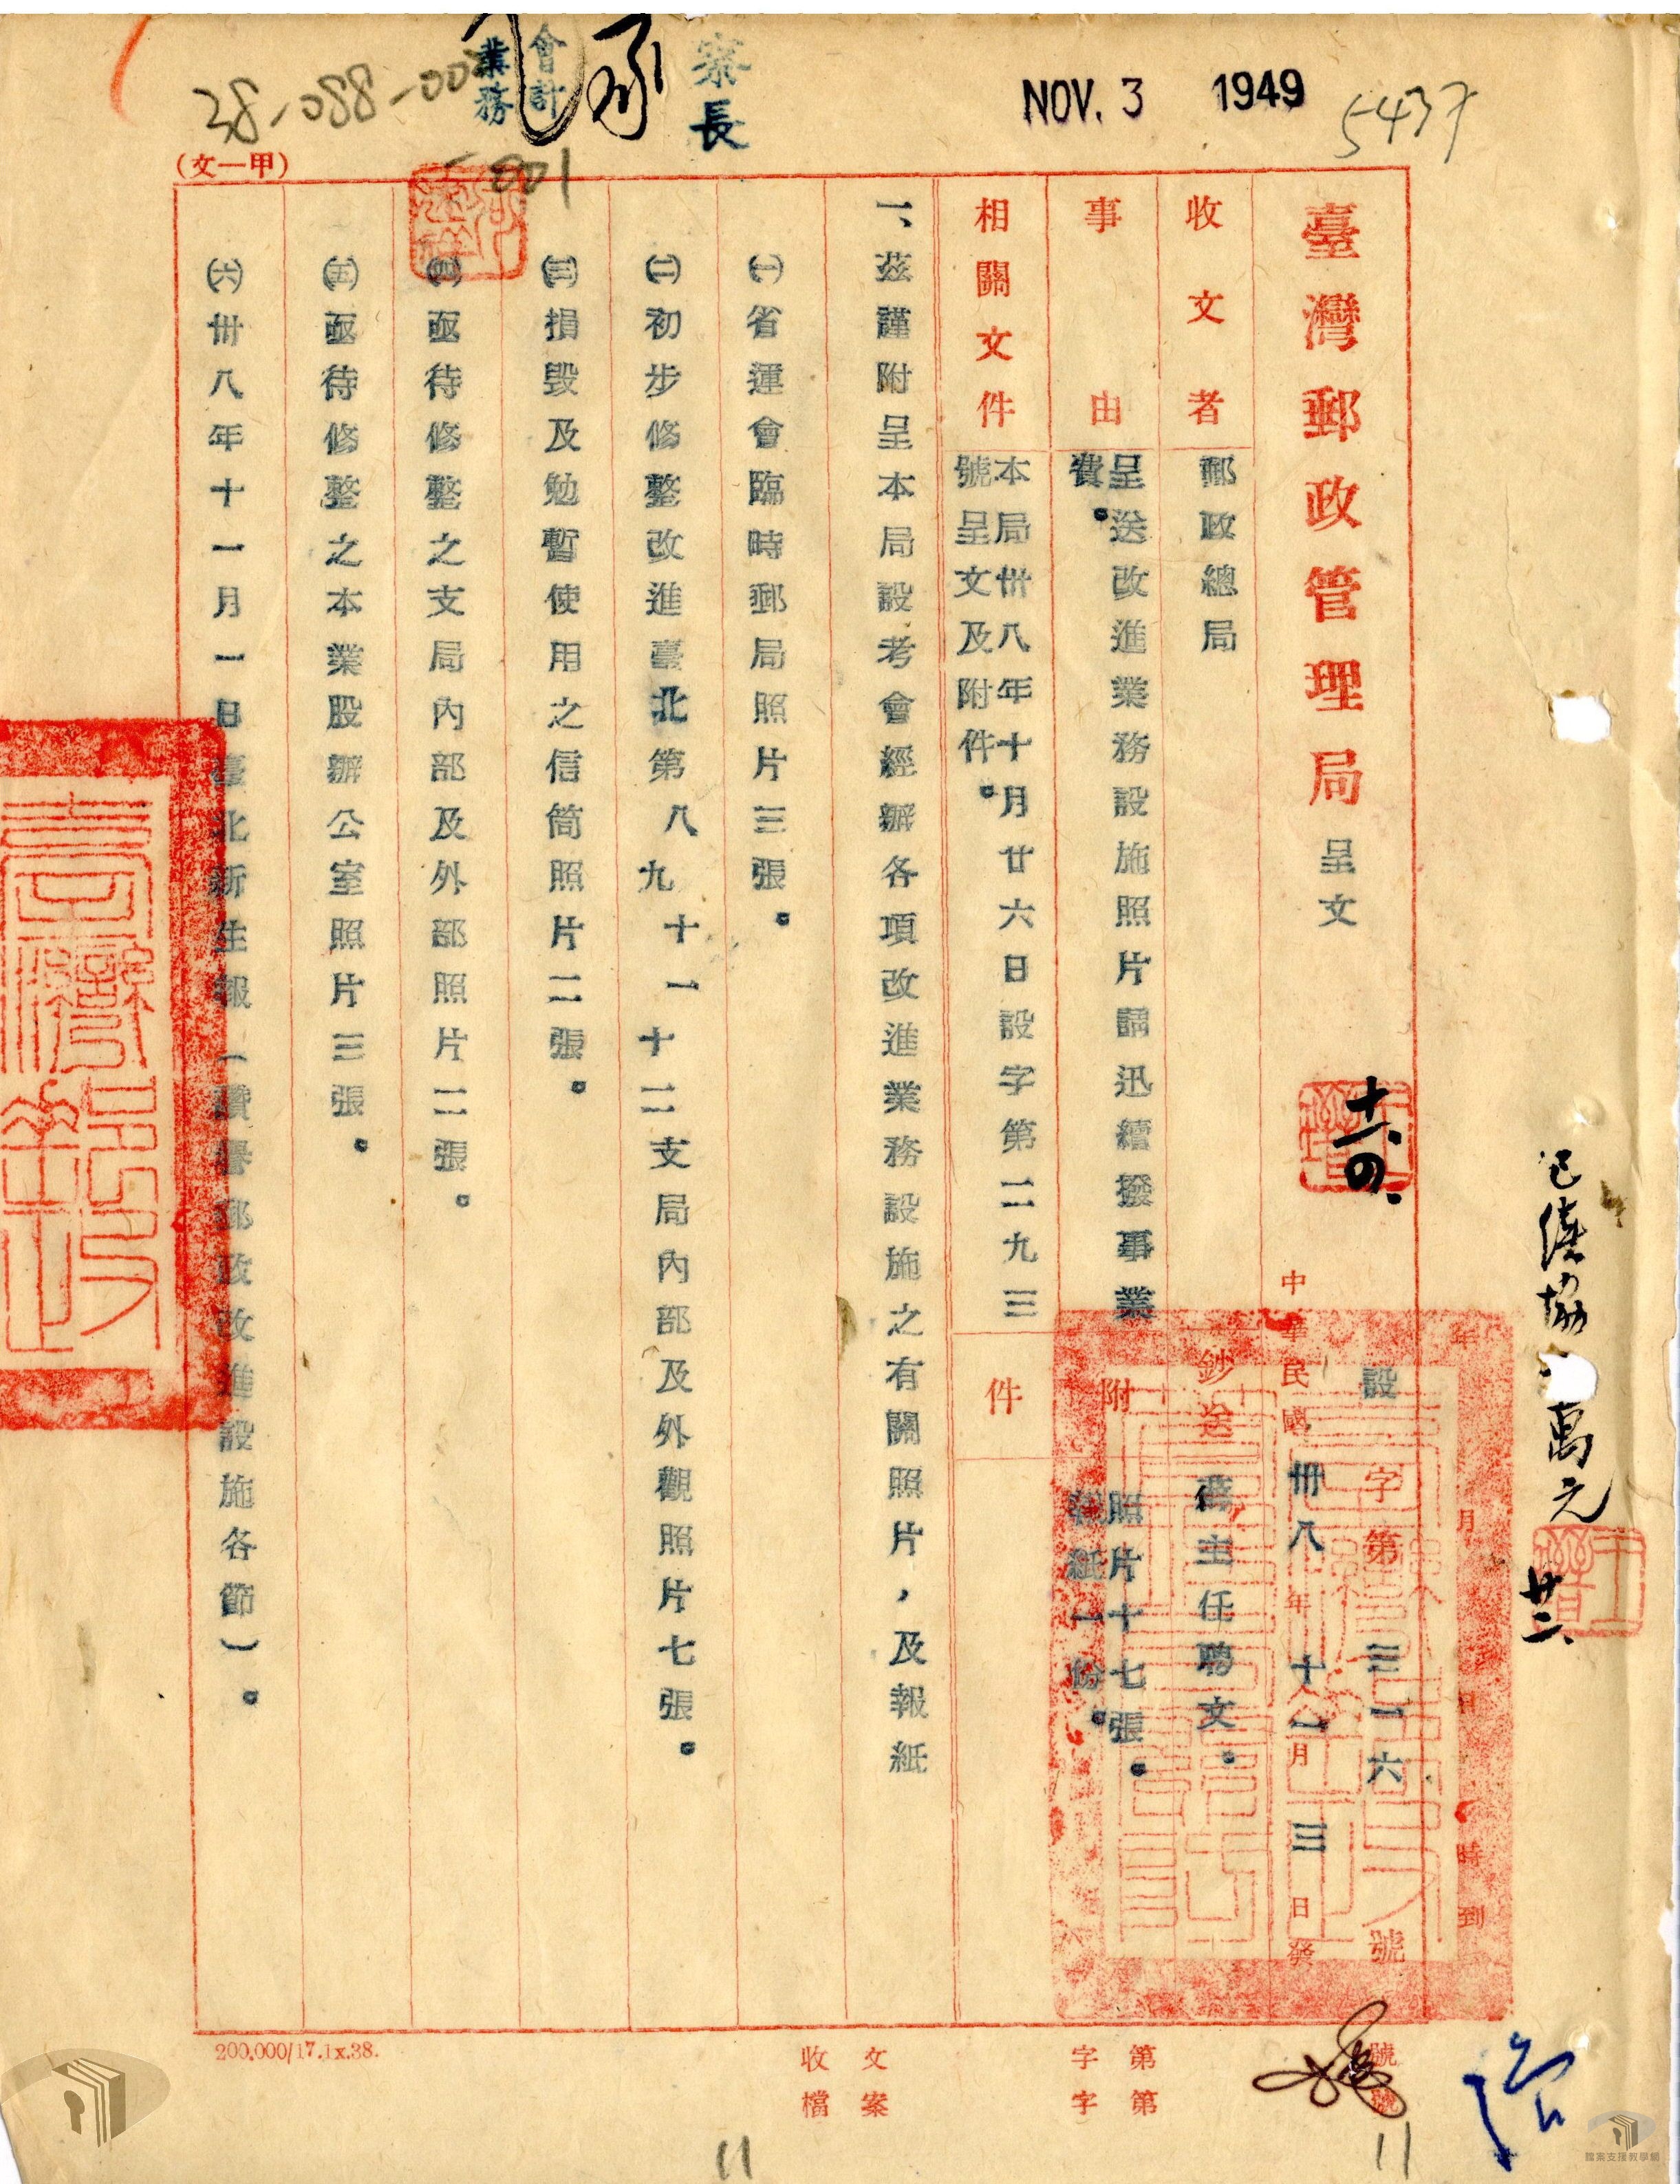 NOV. 3 1949
38-088-00
001
寮長
會計
業務
(文一甲)
臺灣郵政管理局 呈文
年 月 日 時到
設字第三一六號
中華民國卅八年十一月三日發
十一.四.
收文者 郵政總局
鈔送 主任聘文。
事由 呈送改進業務設施照片請迅續撥事業
費。
附件 照片十七張。
報紙一份。
相關文件 本局卅八年十月廿六日設字第二九三
號呈文及附件。
一、茲謹附呈本局設考會經辦各項改進業務設施之有關照片，及報紙
㈠省運會臨時郵局照片三張。
㈡初步修整改進臺北第八九十一十二支局內部及外觀照片七張。
㈢損毀及勉暫使用之信筒照片二張。
㈣亟待修整之支局內部及外部照片二張。
㈤亟待修整之本業股辦公室照片三張。
㈥卅八年十一月一日臺北新生報（讚譽郵政改進設施各節）。
萬元
廿二
200,000/17.ix.38.
收文 字第 號
檔案 字第 號
11
11
檔案支援教學網